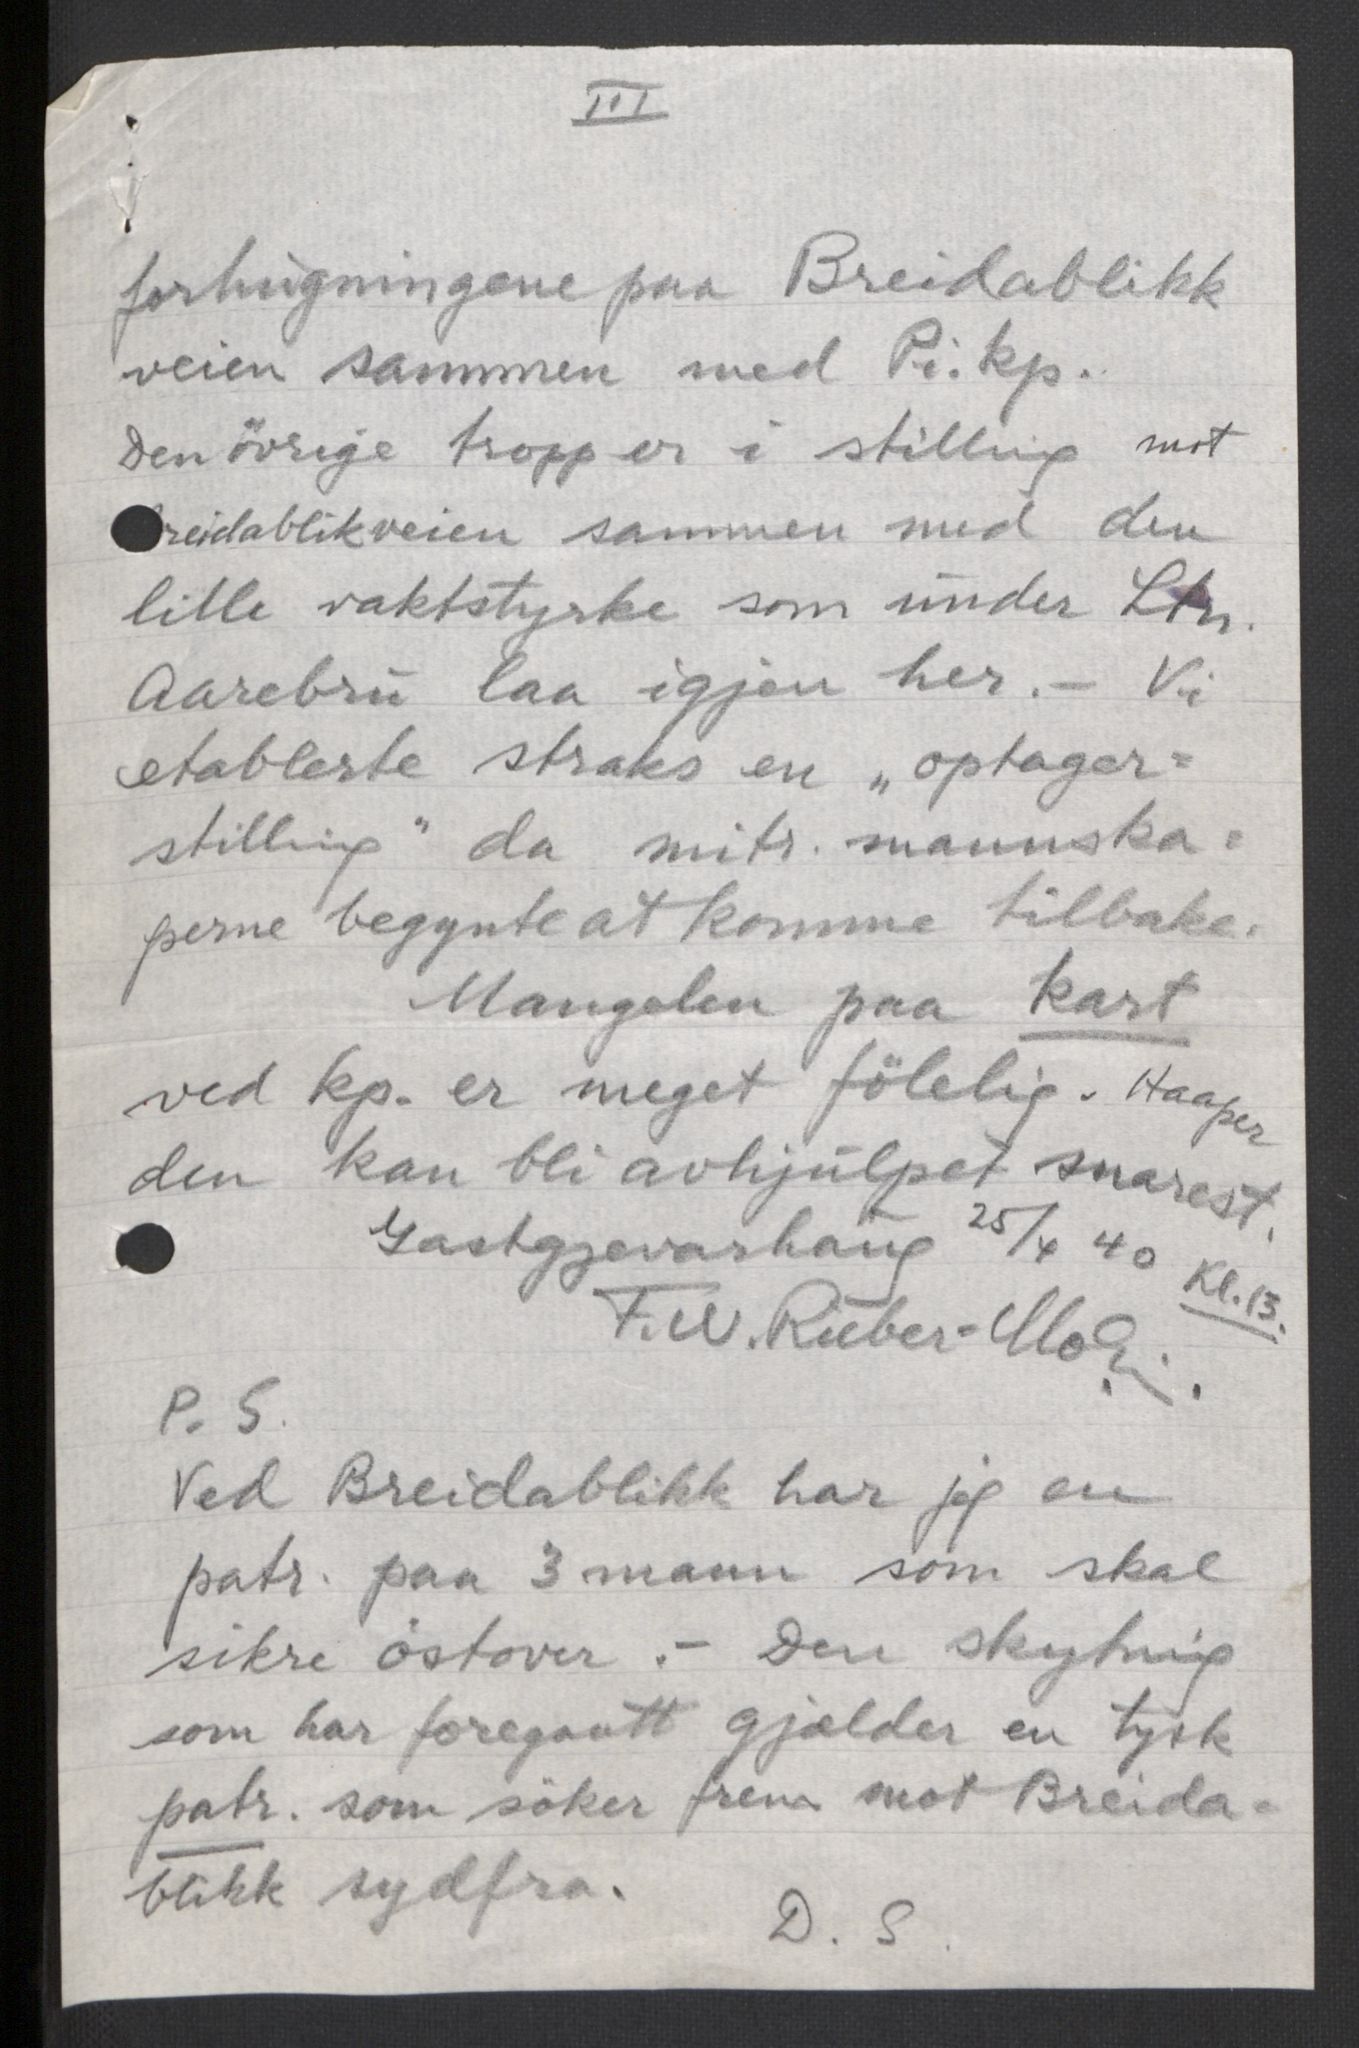 III
forhugningene paa Breidablikk
veien sammen med Pi. kp.
Den övrige tropp er i stilling mot
reidablikveien sammen med den
lille vaktstyrke som under Ltn.
Aarebru laa igjen her. – Vi
etablerte straks en „optager=
stilling" da mitr. mannska=
perne begynte at komme tilbake.
Mangelen paa kart
ved kp. er meget fölelig. Haaper
den kan bli avhjulpet snarest.
Gastgjevarhaug 25/4 40 Kl. 13.
F.W. Rieber-Mohn.
P. S.
Ved Breidablikk har jeg en
patr. paa 3 mann som skal
sikre östover. – Den skytning
som har foregaatt gjælder en tysk
patr. som söker frem mot Breida=
blikk sydfra.
D. S.